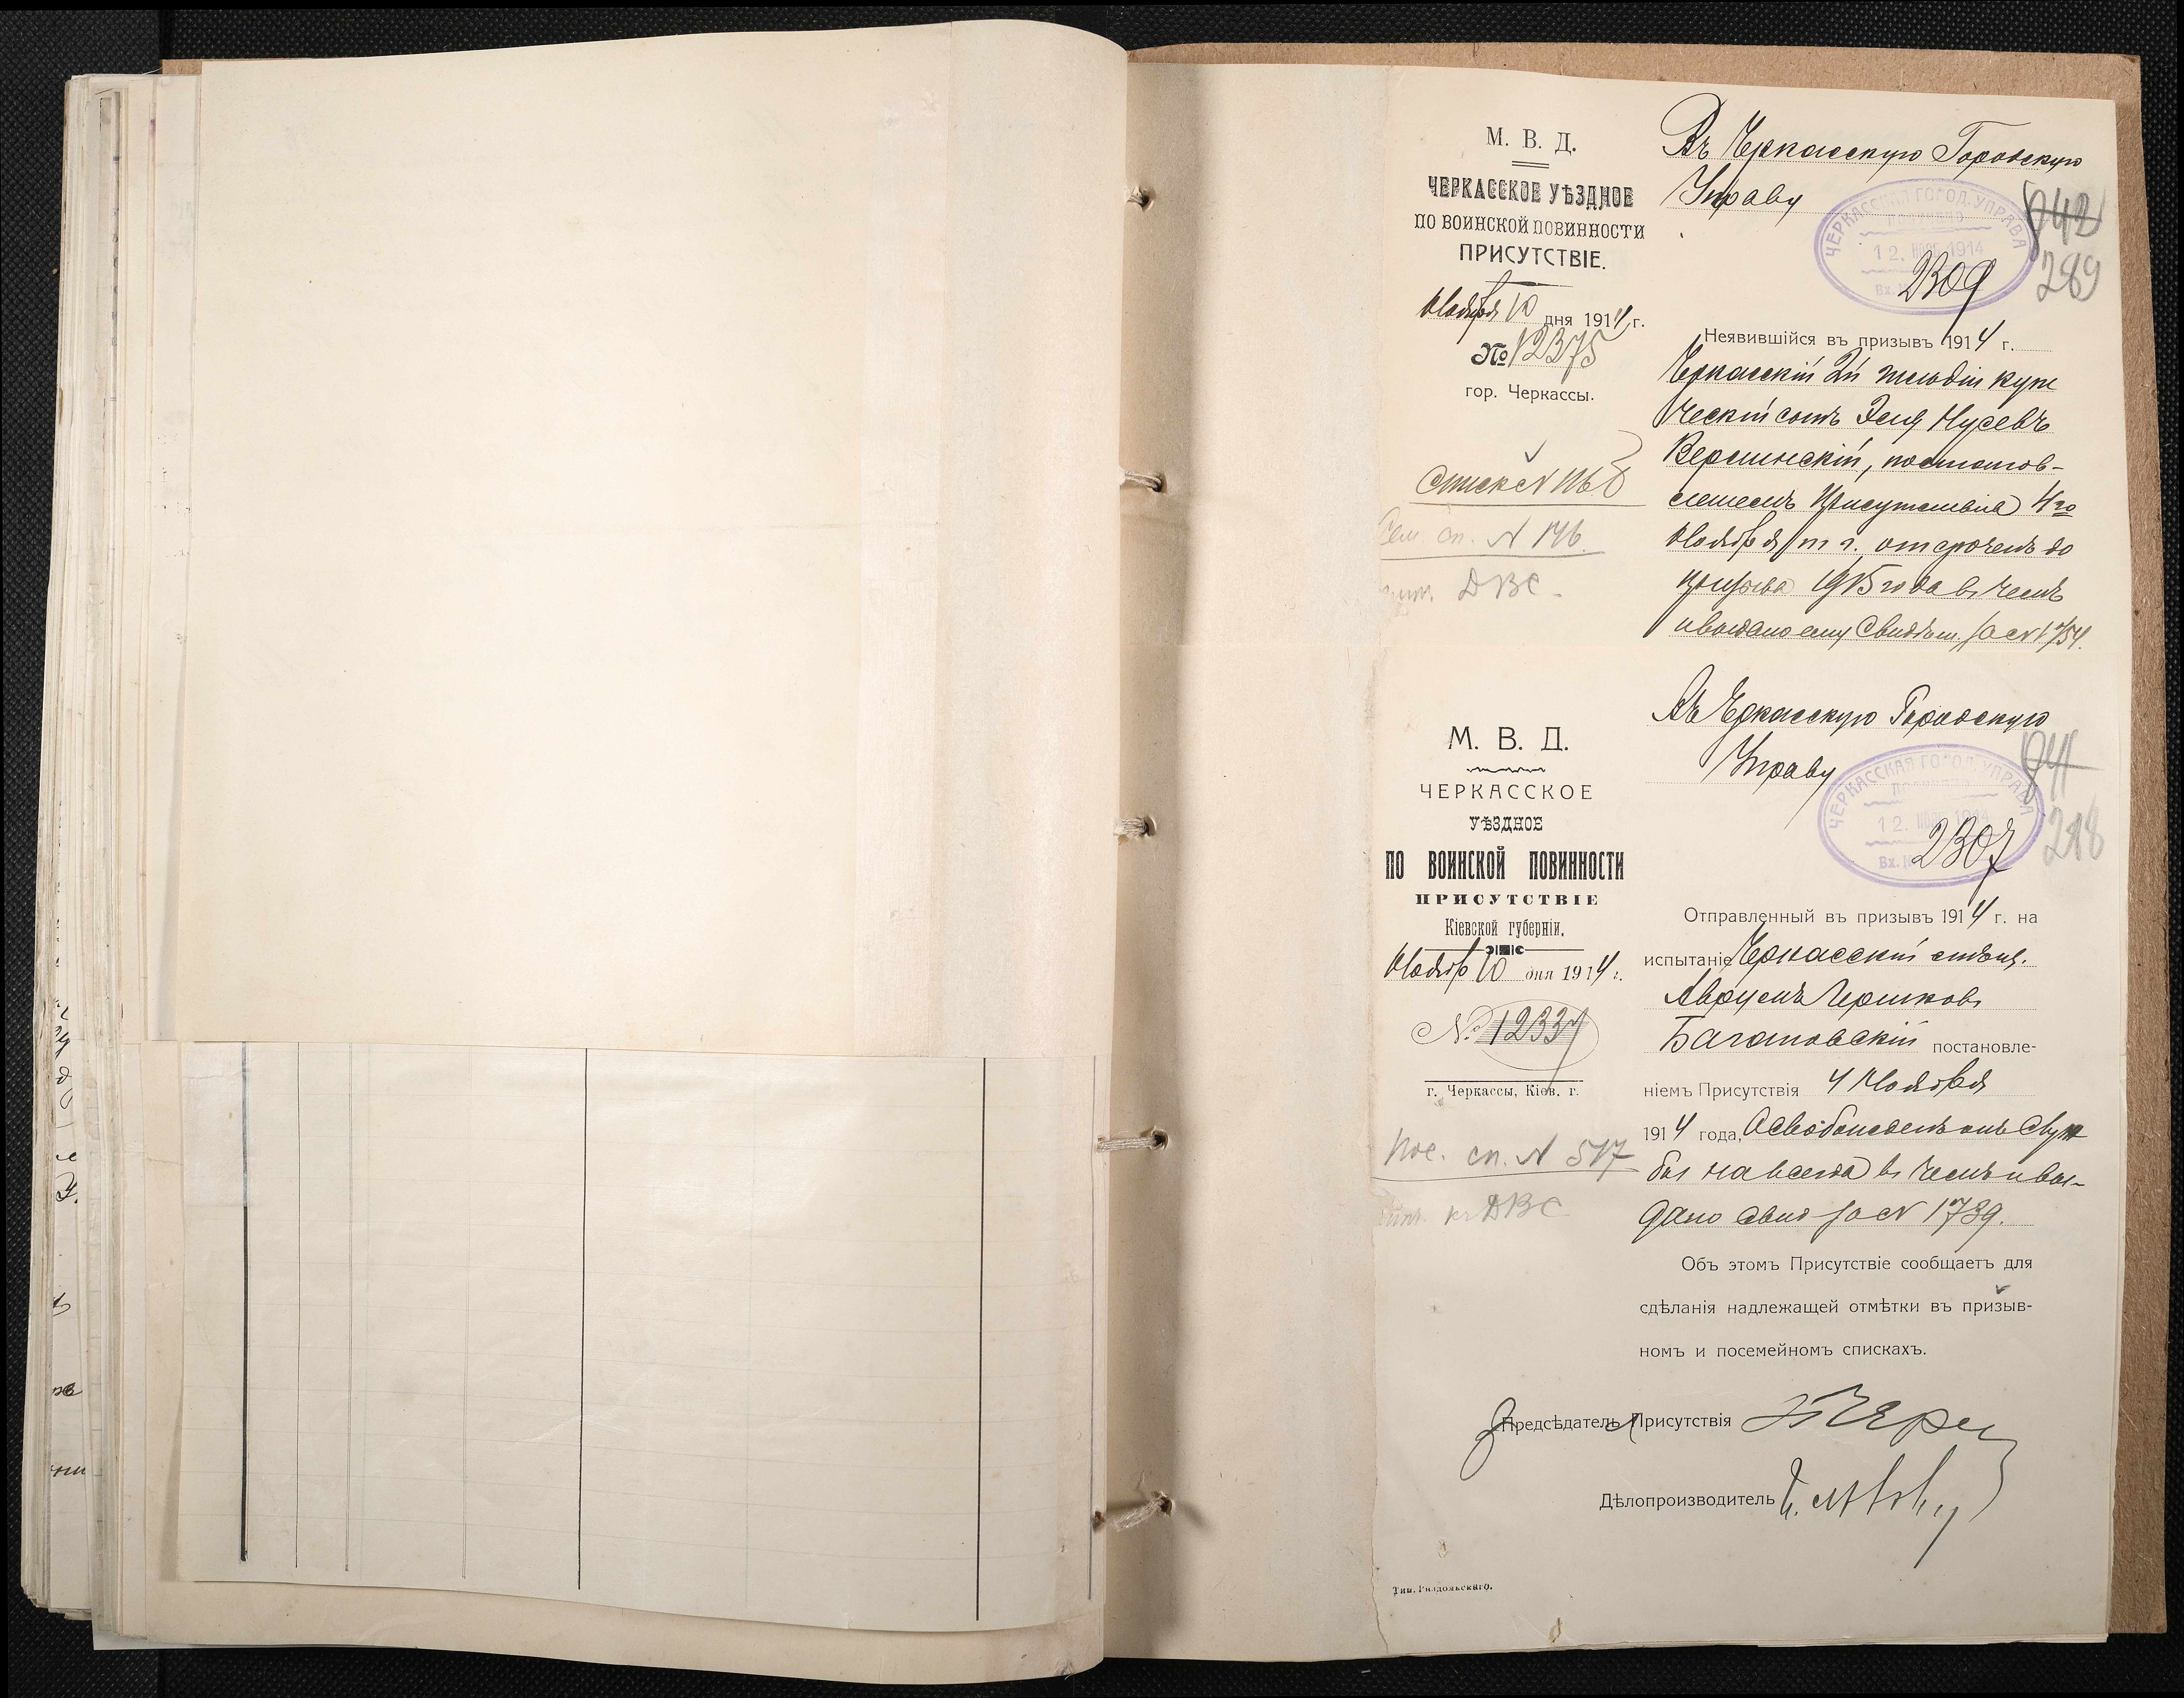 М. В. Д.
ЧЕРКАССКОЕ УѢЗДНОЕ
ПО ВОИНСКОЙ ПОВИННОСТИ
ПРИСУТСТВІЕ.
Ноября 10 дня 1914 г.
№ 12375
гор. Черкассы.
Въ Черкасскую Городскую
Управу
ЧЕРКАССКАЯ ГОРОД. УПРАВА
12. НОЯБ. 1914
2309
289
Неявившійся въ призывъ 1914 г.
Черкасскій 2й гильдіи купе
ческій сынъ Зеця Нусевъ
Вершинскій, постанов-
леніемъ Присутствія 4го
Ноября т. г. отсроченъ до
призыва 1915 года въ чемъ
и выдано ему Свидѣт. за № 1754.
сп. № 146.
ДВС
М. В. Д.
ЧЕРКАССКОЕ
УѢЗДНОЕ
ПО ВОИНСКОЙ ПОВИННОСТИ
ПРИСУТСТВІЕ
Кіевской губерніи.
Нояб 10 дня 1914 г.
№ 12337
г. Черкассы, Кіев. г.
Въ Черкасскую Городскую
Управу
ЧЕРКАССКАЯ ГОРОД. УПРАВА
12. НОЯБ. 1914
Вх. №
2307
Отправленный въ призывъ 1914 г. на
испытаніе Черкасскій мѣщ.
Аврумъ Гершковъ
Багановскій постановле-
ніемъ Присутствія 4 Ноября
1914 года, Освобожденъ отъ Служ
бы навсегда въ чемъ и вы-
дано свид за № 1739.
Пос. сп. № 517
ДВС
Объ этомъ Присутствіе сообщаетъ для
сдѣланія надлежащей отмѣтки въ призыв-
номъ и посемейномъ спискахъ.
Предсѣдатель Присутствія
Дѣлопроизводитель